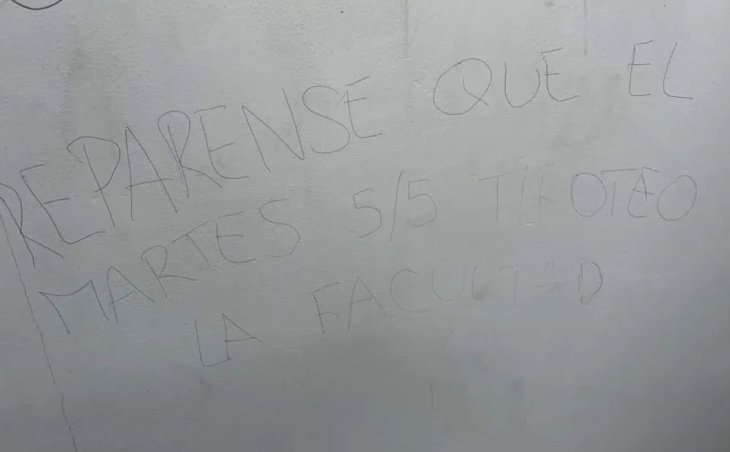 REPARENSE QUE EL
MARTES 5/5 TIROTEO
LA FACULTAD